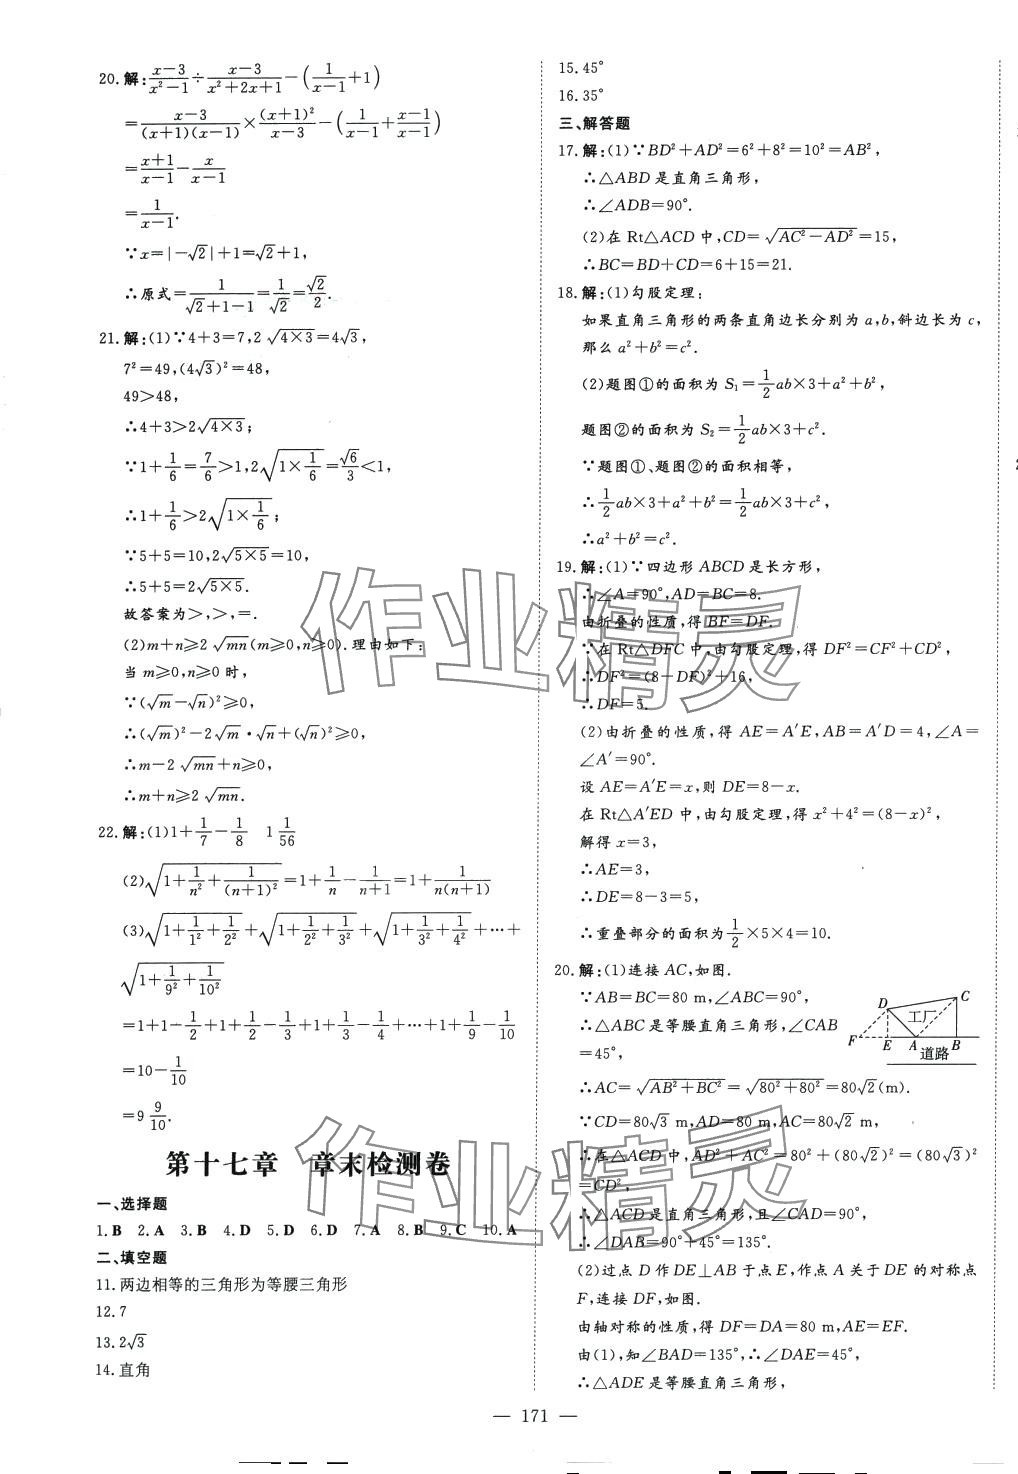 20.解:(x−3)/(x²−1)÷(x−3)/(x²+2x+1)−(1/(x−1)+1)
=(x−3)/((x+1)(x−1))×(x+1)²/(x−3)−(1/(x−1)+(x−1)/(x−1))
=(x+1)/(x−1)−x/(x−1)
=1/(x−1).
∵x=|−√2|+1=√2+1,
∴原式=1/(√2+1−1)=1/√2=√2/2.
21.解:(1)∵4+3=7,2√(4×3)=4√3,
7²=49,(4√3)²=48,
49>48,
∴4+3>2√(4×3);
∵1+1/6=7/6>1,2√(1×1/6)=√6/3<1,
∴1+1/6>2√(1×1/6);
∵5+5=10,2√(5×5)=10,
∴5+5=2√(5×5).
故答案为>,>,=.
(2)m+n≥2√(mn)(m≥0,n≥0).理由如下:
当m≥0,n≥0时,
∵(√m−√n)²≥0,
∴(√m)²−2√m·√n+(√n)²≥0,
∴m−2√(mn)+n≥0,
∴m+n≥2√(mn).
22.解:(1)1+1/7−1/8 1 1/56
(2)√(1+1/n²+1/(n+1)²)=1+1/n−1/(n+1)=1+1/(n(n+1))
(3)√(1+1/1²+1/2²)+√(1+1/2²+1/3²)+√(1+1/3²+1/4²)+…+
√(1+1/9²+1/10²)
=1+1−1/2+1+1/2−1/3+1+1/3−1/4+…+1+1/9−1/10
=10−1/10
=9 9/10.
第十七章 章末检测卷
一、选择题
1.B 2.A 3.B 4.D 5.D 6.D 7.A 8.B 9.C 10.A
二、填空题
11.两边相等的三角形为等腰三角形
12.7
13.2√3
14.直角
15.45°
16.35°
三、解答题
17.解:(1)∵BD²+AD²=6²+8²=10²=AB²,
∴△ABD是直角三角形,
∴∠ADB=90°.
(2)在Rt△ACD中,CD=√(AC²−AD²)=15,
∴BC=BD+CD=6+15=21.
18.解:(1)勾股定理:
如果直角三角形的两条直角边长分别为a,b,斜边长为c,
那么a²+b²=c².
(2)题图①的面积为S₁=1/2ab×3+a²+b²,
题图②的面积为S₂=1/2ab×3+c².
∵题图①、题图②的面积相等,
∴1/2ab×3+a²+b²=1/2ab×3+c²,
∴a²+b²=c².
19.解:(1)∵四边形ABCD是长方形,
∴∠A=90°,AD=BC=8.
由折叠的性质,得BF=DF.
∵在Rt△DFC中,由勾股定理,得DF²=CF²+CD²,
∴DF²=(8−DF)²+16,
∴DF=5.
(2)由折叠的性质,得AE=A′E,AB=A′D=4,∠A=
∠A′=90°.
设AE=A′E=x,则DE=8−x.
在Rt△A′ED中,由勾股定理,得x²+4²=(8−x)²,
解得x=3,
∴AE=3,
∴DE=8−3=5,
∴重叠部分的面积为1/2×5×4=10.
20.解:(1)连接AC,如图.
∵AB=BC=80 m,∠ABC=90°,
∴△ABC是等腰直角三角形,∠CAB
=45°,
D C 工厂 F E A B 道路
∴AC=√(AB²+BC²)=√(80²+80²)=80√2(m).
∵CD=80√3 m,AD=80 m,AC=80√2 m,
∴在△ACD中,AD²+AC²=80²+(80√2)²=(80√3)²
=CD²,
∴△ACD是直角三角形,且∠CAD=90°,
∴∠DAB=90°+45°=135°.
(2)过点D作DE⊥AB于点E,作点A关于DE的对称点
F,连接DF,如图.
由轴对称的性质,得DF=DA=80 m,AE=EF.
由(1),知∠BAD=135°,∴∠DAE=45°,
∴△ADE是等腰直角三角形,
— 171 —
作业精灵
作业精灵